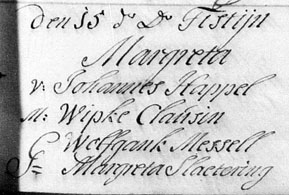 Den 15 d° D° Tistijn
Margreta
v: Johannes Happel
M: Wipke Clausin
G Wolfgank Messell
Margreta Slaetering